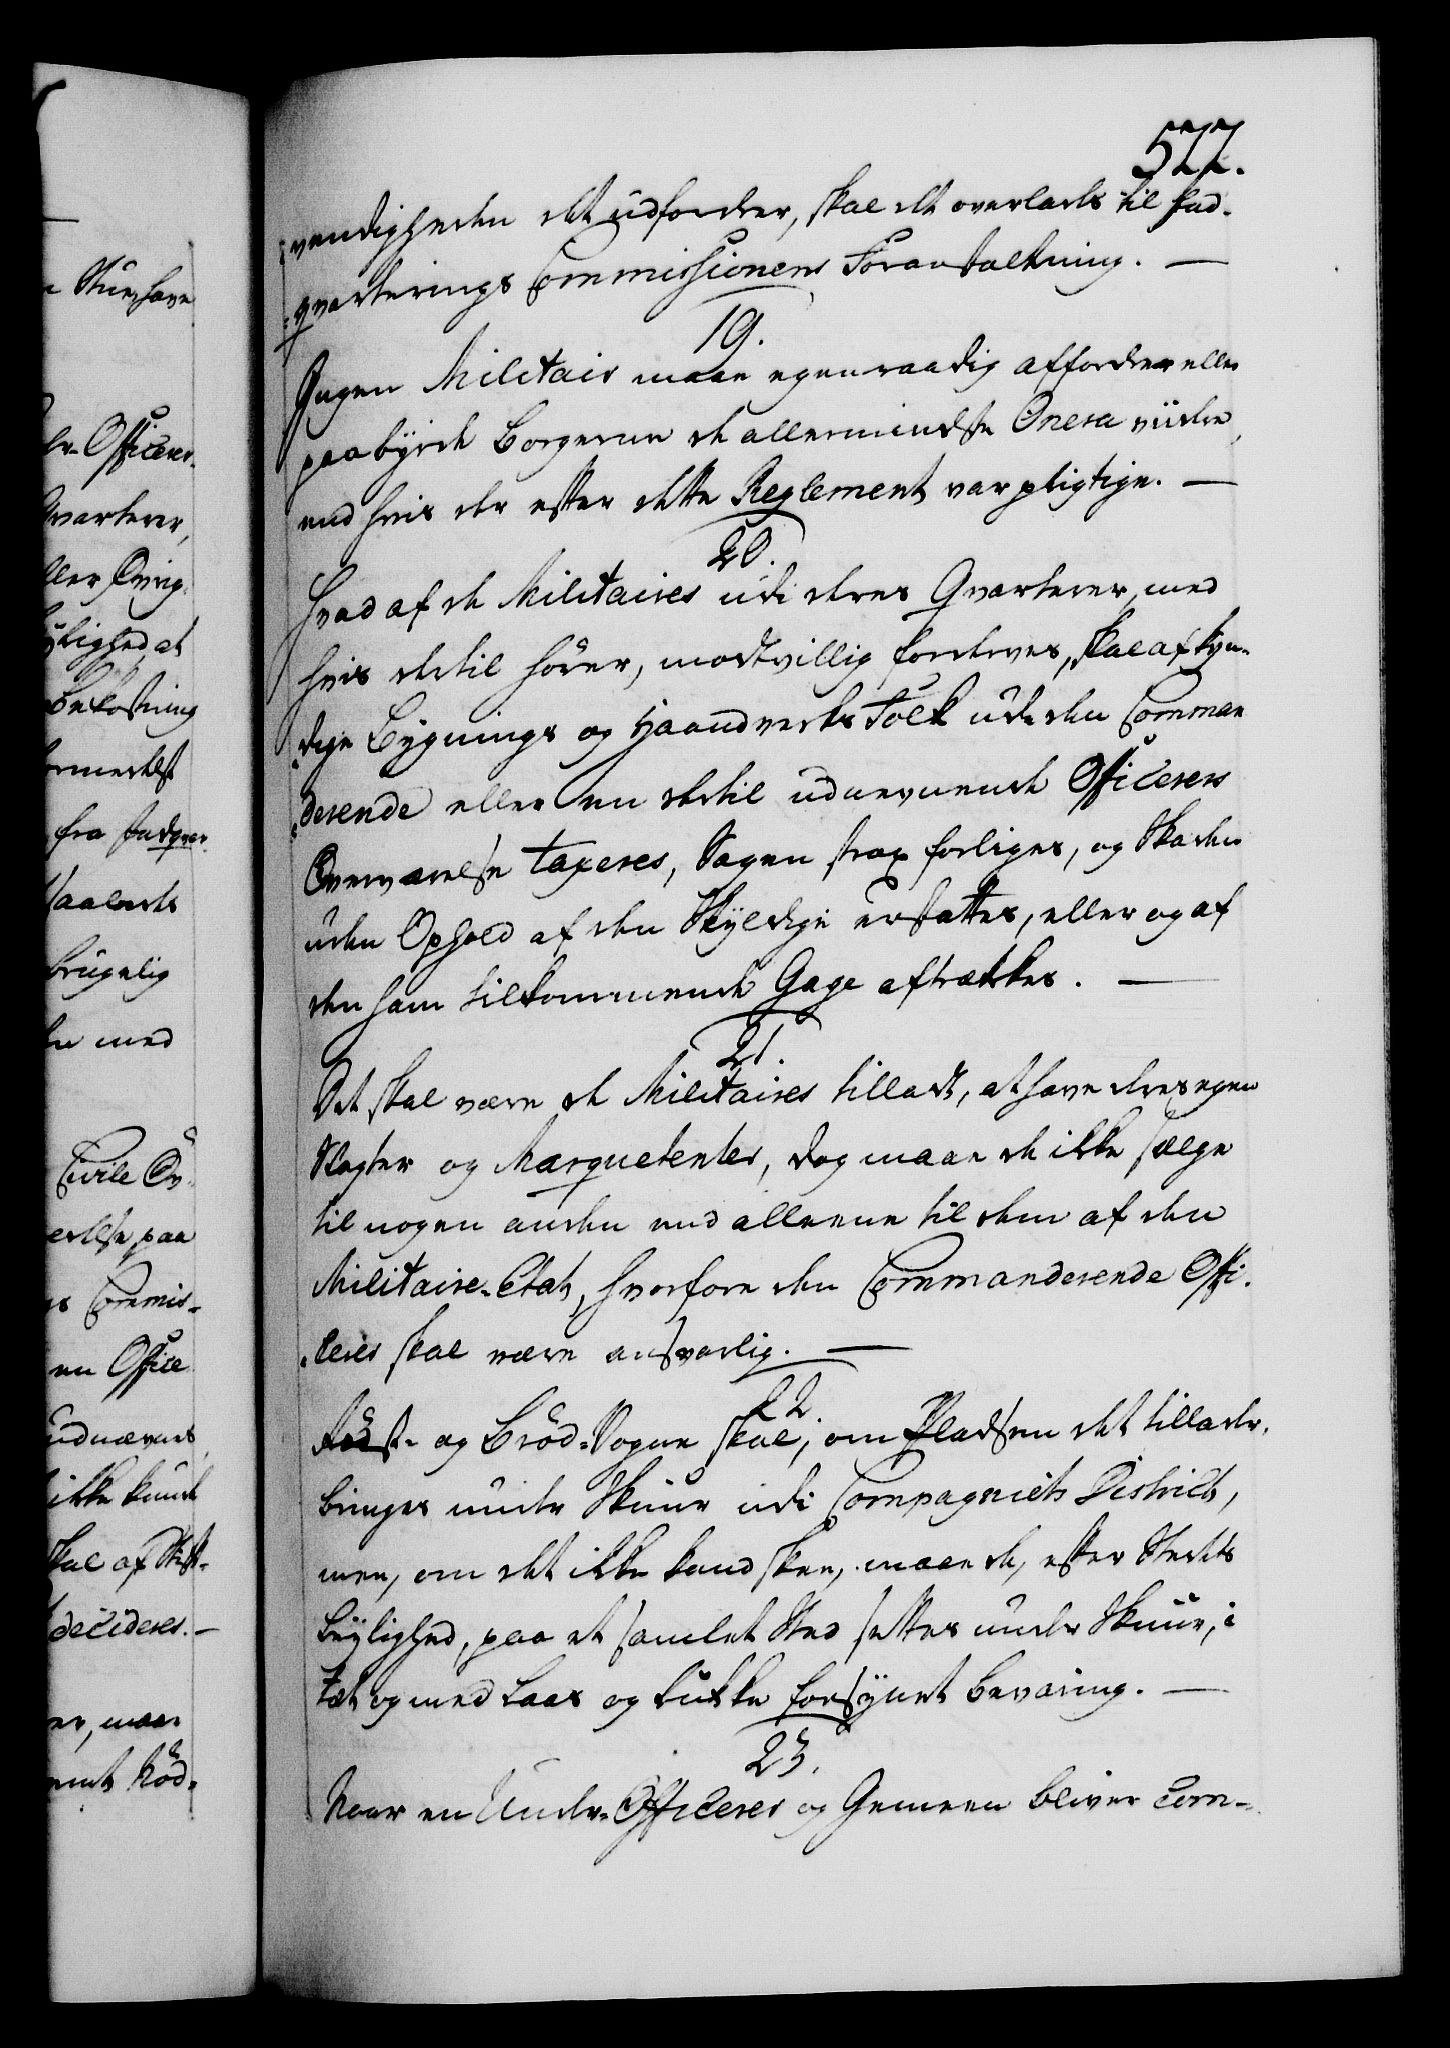 577.
vendigheden det udfordrer, skal det overlades til Ind-
qvarterings Commissionens Foranstaltning. —
19.
Ingen Militair maae egenraadig affordre eller
paabyrde Borgerne de allermindste Onera viidere,
end hvis de efter dette Reglement var pligtige. —
20.
Hvad af de Militaires udi deres Qvarterer, med
hvis dertil hører, modtvillig fordærves, skal af kyn-
dige Bygnings og Haandverks Folk udi den Comman
derende eller en dertil udnevnende Officerers
Overværelse taxeres, Sagen strax forliges, og Skaden
uden Ophold af den Skyldige erstattes, eller og af
den ham tilkommende Gage aftrækkes. —
21.
Det skal være de Militaires tilladt, at have deres egen
Slagter og Marquetenter, dog maae de ikke sælge
til nogen anden end alleene til dem af den
Militaire-Etat, hvorfore den Commanderende Offi-
cerer skal være ansvarlig. —
22.
Rüst- og Brød-Vogne skal, om Pladsen det tillader,
bringes under Skuur udi Compagniets District,
men, om det ikke kand skee, maae de, efter Stedets
Beylighed, paa et samlet Sted settes under Skuur, i
tæt og med Laas og Lukke forsynet Bevaring. —
23.
Naar en Under-Officerer og Gemeen bliver com-
Stue, have
der-Officerer
Qvarterer,
eller Øvrig-
at
Bekostning
formedelst
fra Indqvar
brugelig
med
Civile Øv-
paa
Commis-
en Office
udnævnes
ikke kunde
skal af Stift-
decideres. —
er, maae
Nød-